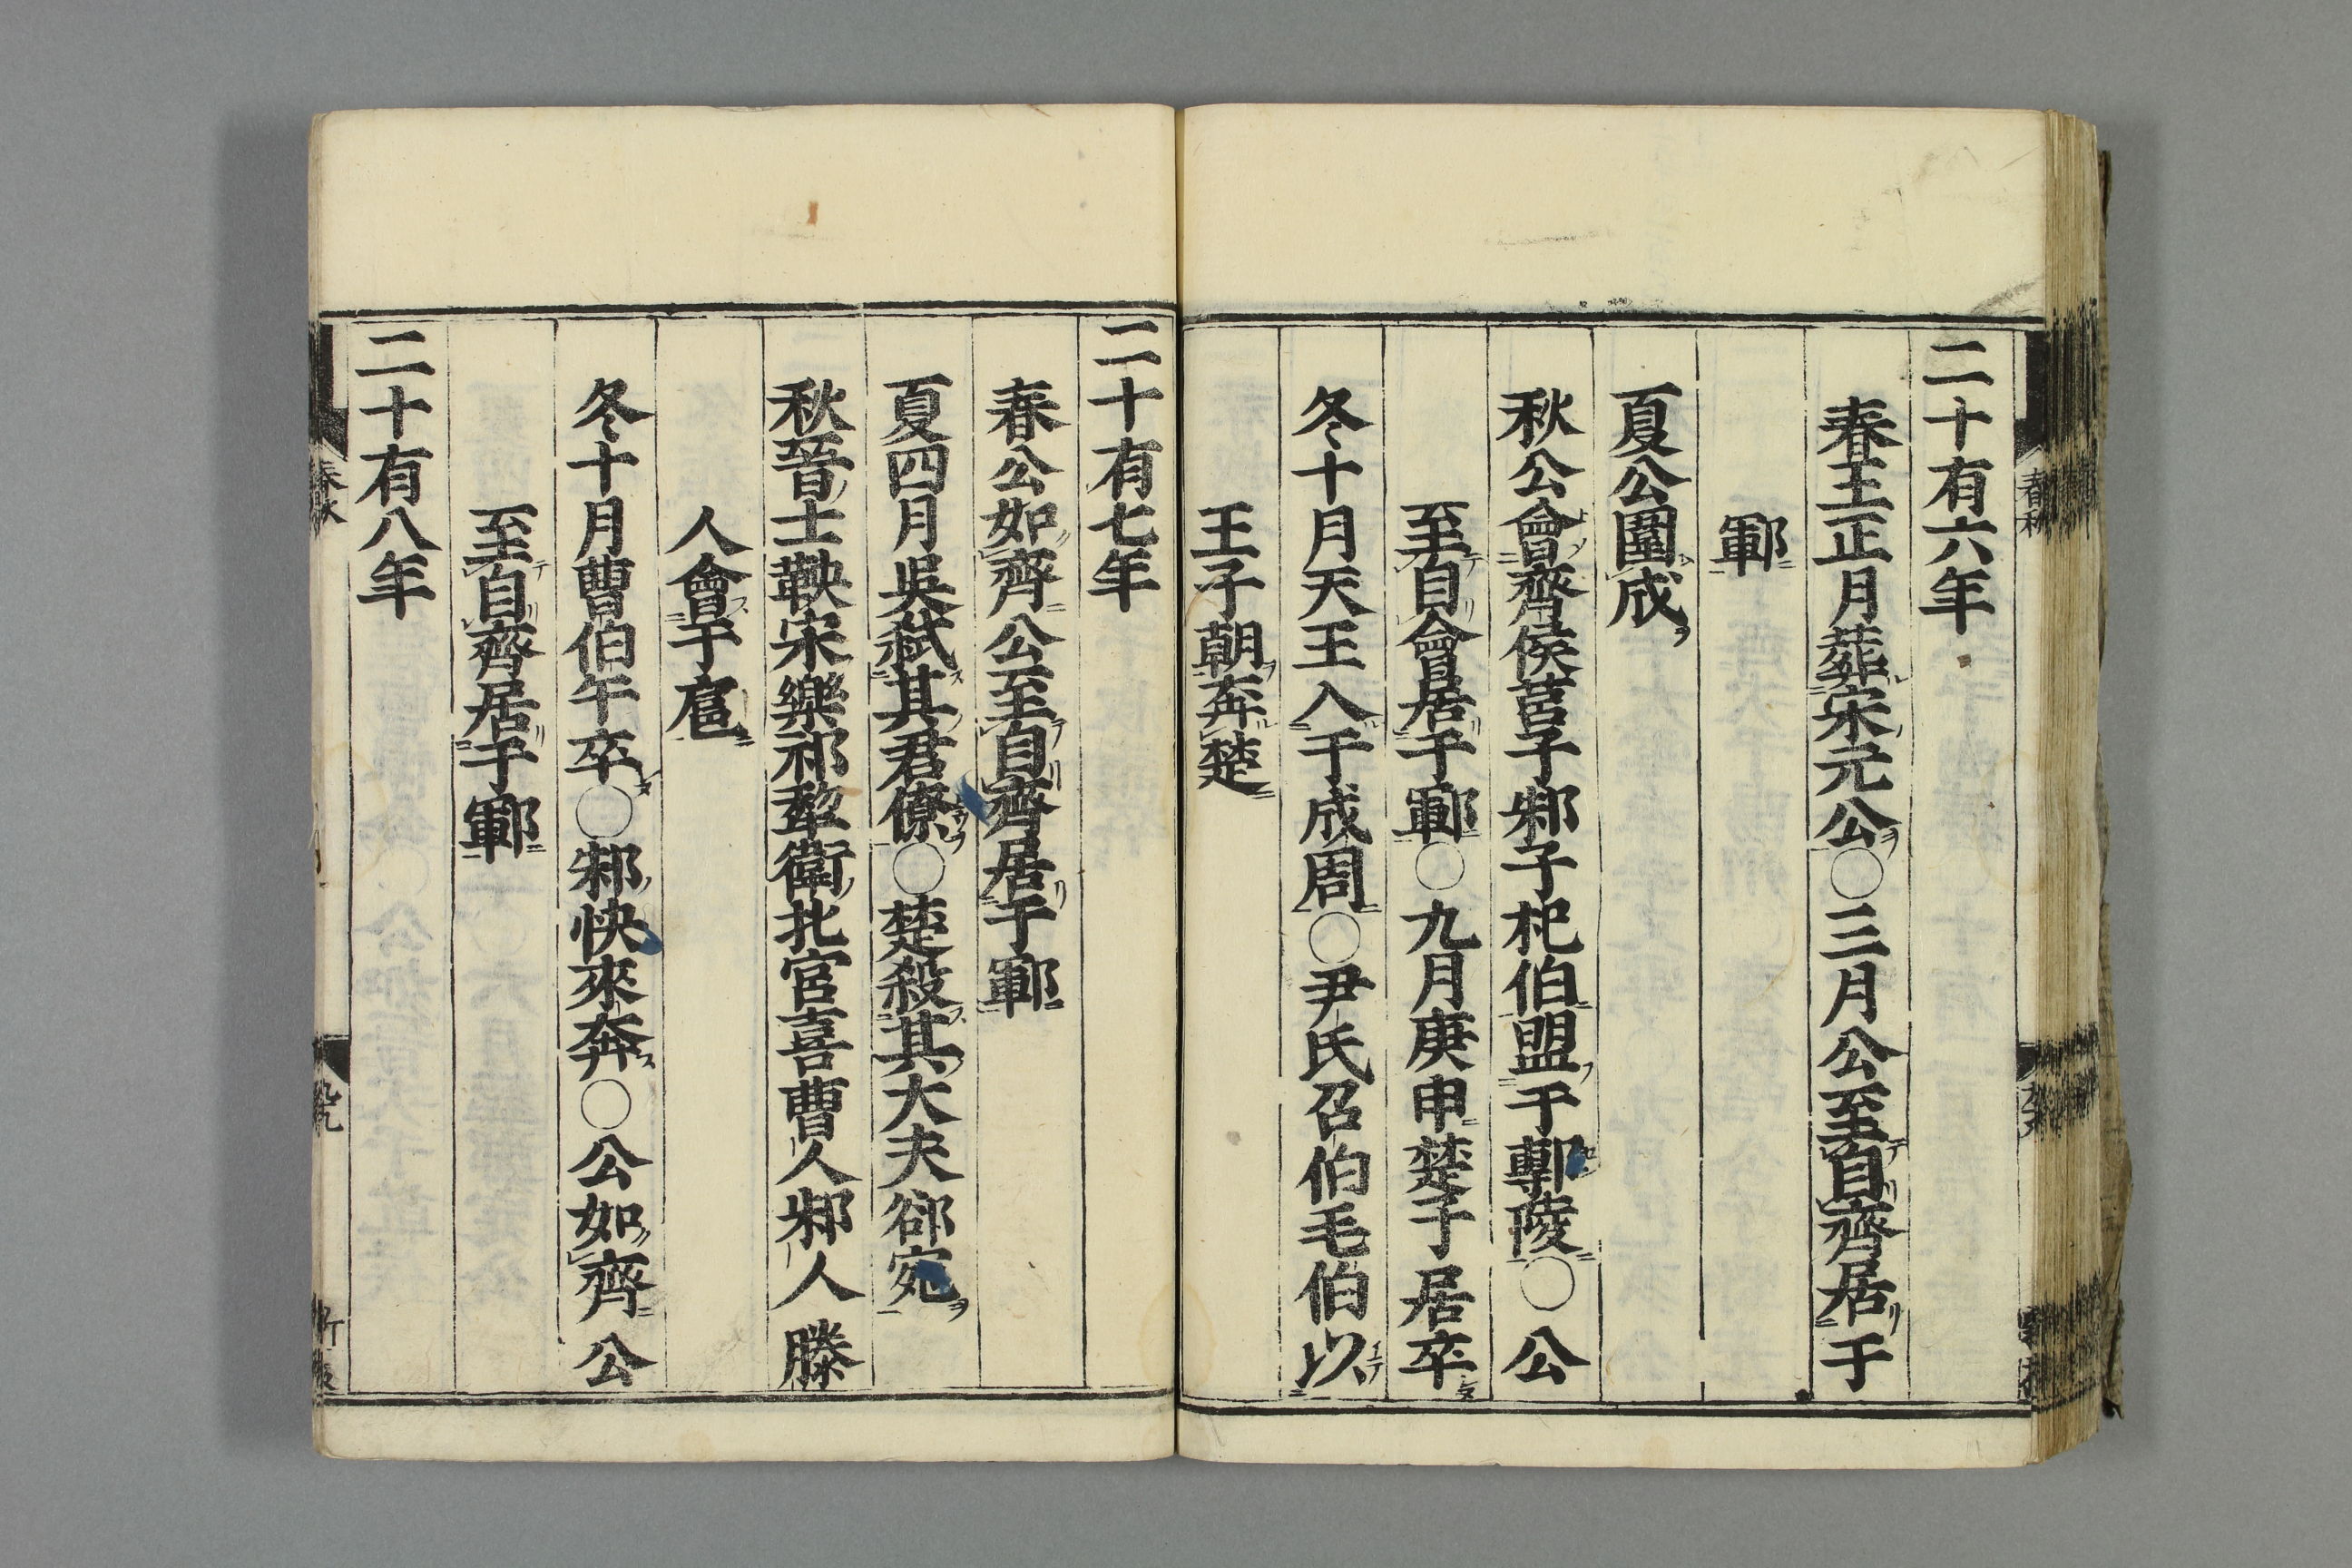 二十有六年
春王正月葬宋元公○三月公至自齊居于
鄆
夏公圍成
秋公會齊侯莒子邾子杞伯盟于鄟陵○公
至自會居于鄆○九月庚申楚子居卒
冬十月天王入于成周○尹氏召伯毛伯以
王子朝奔楚
二十有七年
春公如齊公至自齊居于鄆
夏四月吳弒其君僚○楚殺其大夫郤宛
秋晉士鞅宋樂祁犂衛北宮喜曹人邾人滕
人會于扈
冬十月曹伯午卒○邾快來奔○公如齊公
至自齊居于鄆
二十有八年
春秋